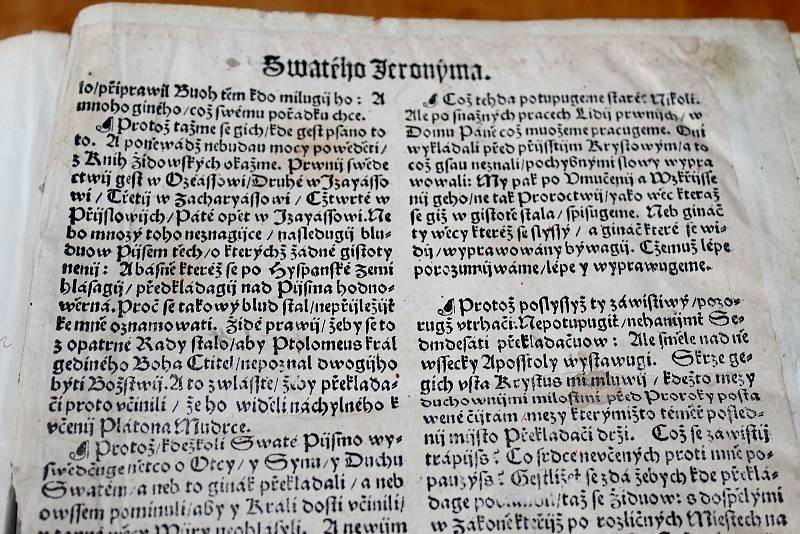 Swatého Jeronýma.
lo/připrawil Buoh těm kdo milugij ho: A
mnoho giného/což swému pořádku chce.
¶ Protož tažme se gich/kde gest psáno to
to. A poněwádž nebudau mocy powěděti/
z Knih Židowských okažme. Prwnij swěde
ctwij gest w Ozeášowi/Druhé w Izayášo
wi / Třetij w Zacharyášowi / Cžtwrté w
Přijslowijch/Páté opět w Izayášowi. Ne
bo mnozý toho neznagijce / následugij blu-
duow Pijsem těch/o kterýchž žádné gistoty
nenij: A básně kteréž se po Hyspanské Zemi
hlásagij/překládagij nad Pijsma hodno-
wěrná. Proč se takowý blud stal/nepřijležijť
ke mně oznamowati. Židé prawij/žeby se to
z opatrné Rady stalo/aby Ptolomeus král
gediného Boha Ctitel/nepoznal dwogijho
býti Božstwij. A to zwláště/žeby překlada-
či proto včinili / že ho widěli náchylného k
včenij Plátona Mudrce.
¶ Protož/kdežkoli Swaté Pijsmo wy-
swědčuge něco o Otcy/ y Synu/ y Duchu
Swatém/a neb to gináč překládali / a neb
owssem pominuli/aby y Králi dosti včinili/
Wijry neohlásyli. A newijm
¶ Což tehda potupugeme staré? Nikoli.
Ale po snažných pracech Lidij prwnijch/w
Domu Páně což muožeme pracugeme. Oni
wykládali před přijsstijm Krystowým/a to
což gsau neznali/pochybnými slowy wypra
wowali: My pak po Vmučenij a Wzkřijsse
nij geho/ne tak Proroctwij/yako wěc kteráž
se giž w gistotě stala / spisugeme. Neb gináč
ty wěcy kteréž se slyssý / a gináč které se wi-
dij/wyprawowány býwagij. Cžemuž lépe
porozumijwáme/lépe y wyprawugeme.
¶ Protož poslyšyž ty záwistiwý/pozo-
rugž vtrhači: Nepotupugiť/nehanijmť Se-
dmdesáti překladačuow: Ale směle nad ně
wssecky Apoštoly wystawugi. Skrze ge-
gich vsta Krystus mi mluwij / kdežto mezy
duchownijmi milostmi před Proroky posta
wené čijtám/mezy kterýmižto téměř posled-
nij mijsto Překladači držj. Což se záwistij
trápijss? Co srdce nevčených proti mně po-
pauzýss? Gestližeť se zdá žebych kde překlá-
dage /taž se Židuow: s dospělými
w Zákoně kteřijž po rozličných Miestech na